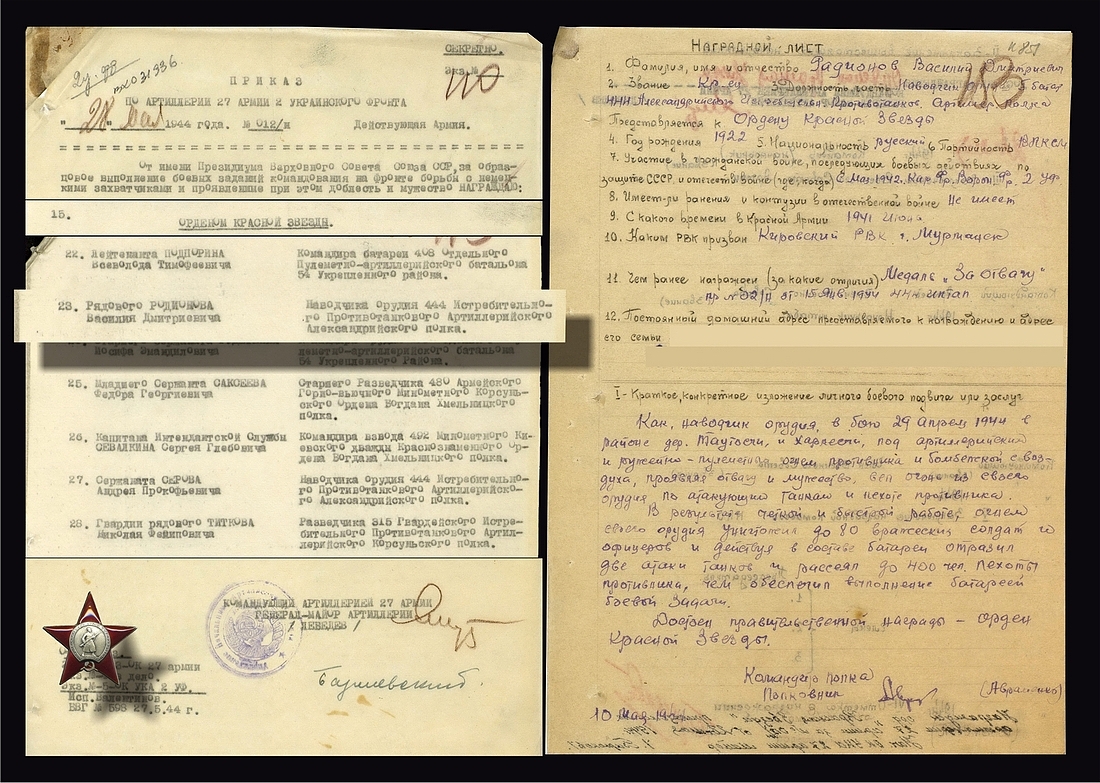 СЕКРЕТНО.
Экз.№
110
П Р И К А З
ПО АРТИЛЛЕРИИ 27 АРМИИ 2 УКРАИНСКОГО ФРОНТА
"28" Мая 1944 года. № 012/н Действующая Армия.
От имени Президиума Верховного Совета Союза ССР, за образ-
цовое выполнение боевых заданий командования на фронте борьбы с немец-
кими захватчиками и проявленные при этом доблесть и мужество НАГРАЖДАЮ:
15.
ОРДЕНОМ КРАСНОЙ ЗВЕЗДЫ.
22. Лейтенанта ПОДПОРИНА
Всеволода Тимофеевича
Командира батареи 408 Отдельного
Пулеметно-артиллерийского батальона
54 Укрепленного района.
23. Рядового РОДИОНОВА
Василия Дмитриевича
Наводчика орудия 444 Истребительно-
го Противотанкового Артиллерийского
Александрийского полка.
леметно-артиллерийского батальона
54 Укрепленного Района.
25. Младшего Сержанта САКСЕЕВА
Федора Георгиевича
Старшего Разведчика 480 Армейского
Горно-вьючного Минометного Корсунь-
ского Ордена Богдана Хмельницкого
полка.
26. Капитана Интендантской Службы
СЕВАЛКИНА Сергея Глебовича
Командира взвода 492 Минометного Ки-
евского дважды Краснознаменного Ор-
дена Богдана Хмельницкого полка.
27. Сержанта СЕРОВА
Андрея Прокофьевича
Наводчика орудия 444 Истребительно-
го Противотанкового Артиллерийско-
го Александрийского полка.
28. Гвардии рядового ТИТКОВА
Николая
Разведчика 315 Гвардейского Истре-
бительного Противотанкового Артил-
лерийского Корсуньского полка.
КОМАНДУЮЩИЙ АРТИЛЛЕРИЕЙ 27 АРМИИ
ГЕНЕРАЛ-МАЙОР АРТИЛЛЕРИИ
/ ЛЕБЕДЕВ /
27 армии
дело.
УКА 2 УФ.
№ 598 27.5.44 г.
НАГРАДНОЙ ЛИСТ
1. Фамилия, имя и отчество Радионов Василий Дмитриевич
2. Звание Кр-ец 3. Должность, часть Наводчик
444 Александрийского Противотанков. Артил. Полка
Представляется к Ордену Красной Звезды
4. Год рождения 1922 5. Национальность русский 6. Партийность ВЛКСМ
7. Участие в гражданской войне, последующих боевых действиях по
защите СССР, и отечеств. войне (где, когда) С мая 1942. Кар. Фр. Ворон. Фр. 2 УФ
8. Имеет-ли ранения и контузии в отечественной войне Не имеет
9. С какого времени в Красной Армии 1941 Июнь
10. Каким РВК призван Кировский РВК г. Мурманск
11. Чем ранее награжден (за какие отличия) Медаль "За Отвагу"
пр № 02/п от 15 Янв. 1944 444 иптап
12. Постоянный домашний адрес представляемого к награждению и адрес
его семьи
I - Краткое, конкретное изложение личного боевого подвига или заслуг
Как наводчик орудия, в бою 29 Апреля 1944 в
районе дер. Таутости и Харлести, под артиллерийским
и ружейно-пулеметн. огнем противника и бомбежкой с воз-
духа, проявляя отвагу и мужество, вел огонь из своего
орудия по атакующим танкам и пехоте противника.
В результате четкой и быстрой работе, огнем
своего орудия уничтожил до 80 вражеских солдат и
офицеров и действуя в составе батареи отразил
две атаки танков и рассеял до 400 чел. пехоты
противника, чем обеспечил выполнение батареей
боевой задачи.
Достоен правительственной награды - орден
Красной Звезды.
Командир полка
Полковник (Авраменко)
10 Мая 194